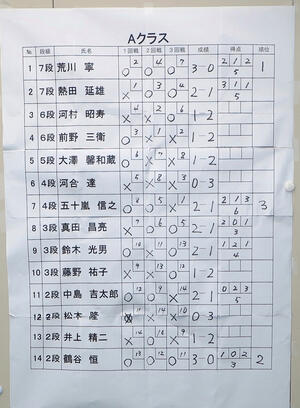 Aクラス
№ 段級 氏名 1回戦 2回戦 3回戦 成績 得点 順位
1 7段 荒川 寧 ○2 ○4 ○7 3-0 2 1 2 5 1
2 7段 熱田 延雄 ×1 ○3 ○4 2-1 3 1 1 5
3 6段 河村 昭寿 ○4 ×2 ×1-2
4 6段 前野 三衛 ○3 ×1 ×2 1-2
5 5段 大澤 馨和蔵 ○6 ×7 ×8 1-2
6 4段 河合 達 ×5 ×8 ×3 0-3
7 4段 五十嵐 信之 ○8 ○5 ×1 2-1 2 1 3 6 3
8 3段 真田 昌亮 ×7 ○6 ○5 2-1 2 0 1 3
9 3段 鈴木 光男 ○10 ×11 ○13 2-1 1 2 1 4
10 3段 藤野 祐子 ×9 ×13 ○12 1-2
11 2段 中島 吉太郎 ○12 ○9 ×14 2-1 0 2 3 5
12 2段 松本 隆 ×11 ×14 ×10 0-3
13 2段 井上 精二 ×14 ○10 ×9 1-2
14 2段 鶴谷 恒 ○13 ○12 ○11 3-0 1 0 2 3 2